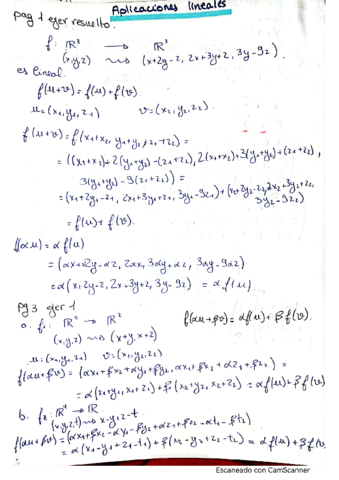 Aplicaciones lineales
pag 1 ejer resuelto.
f: ℝ³ → ℝ³
(x,y,z) ⟿ (x+2y-z, 2x+3y+z, 3y-9z)
es lineal.
f(u+v) = f(u) + f(v).
u = (x₁, y₁, z₁) v = (x₂, y₂, z₂)
f(u+v) = f(x₁+x₂, y₁+y₂, z₁+z₂) =
= ((x₁+x₂)+2(y₁+y₂)-(z₁+z₂), 2(x₁+x₂)+3(y₁+y₂)+(z₁+z₂),
3(y₁+y₂)-9(z₁+z₂)) =
= (x₁+2y₁-z₁, 2x₁+3y₁+z₁, 3y₁-9z₁) + (x₂+2y₂-z₂, 2x₂+3y₂+z₂, 3y₂-9z₂)
= f(u) + f(v).
f(αu) = α f(u)
= (αx+α2y-αz, 2αx, 3αy+αz, 3αy-9αz)
= α(x+2y-z, 2x+3y+z, 3y-9z) = α f(u).
pg 3 ejer 1
a. f₁: ℝ³ → ℝ² f(αu+βv) = αf(u) + βf(v).
(x,y,z) ⟿ (x+y, x+z)
u = (x₁,y₁,z₁) v = (x₂,y₂,z₂)
f(αu+βv) = (αx₁+βx₂+αy₁+βy₂, αx₁+βx₂+αz₁+βz₂) =
= α(x₁+y₁, x₁+z₁) + β(x₂+y₂, x₂+z₂) = αf(u)+βf(v)
b. f₂: ℝ⁴ → ℝ
(x,y,z,t) ⟿ x-y+z-t
f(αu+βv) = (αx₁+βx₂-αy₁-βy₂+αz₁+βz₂-αt₁-βt₂)
= α(x₁-y₁+z₁-t₁) + β(x₂-y₂+z₂-t₂) = αf(u)+βf(v.
Escaneado con CamScanner